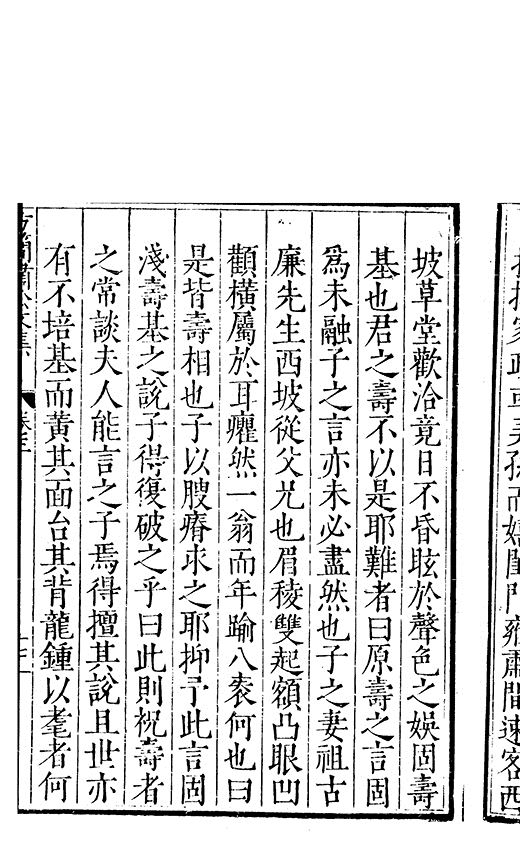 家政或弄孫而嬉閨門雍肅間速客西
坡草堂歡洽竟日不昏眩於聲色之娛固壽
基也君之壽不以是耶難者曰原壽之言固
爲未融子之言亦未必盡然也子之妻祖古
廉先生西坡從父兄也眉稜雙起額凸眼凹
顴橫屬於耳癯然一翁而年踰八袠何也曰
是皆壽相也子以膄瘠求之耶抑予此言固
淺壽基之說子得復破之乎曰此則祝壽者
之常談夫人能言之子焉得擅其說且世亦
有不培基而黃其面台其背龍鍾以耄者何